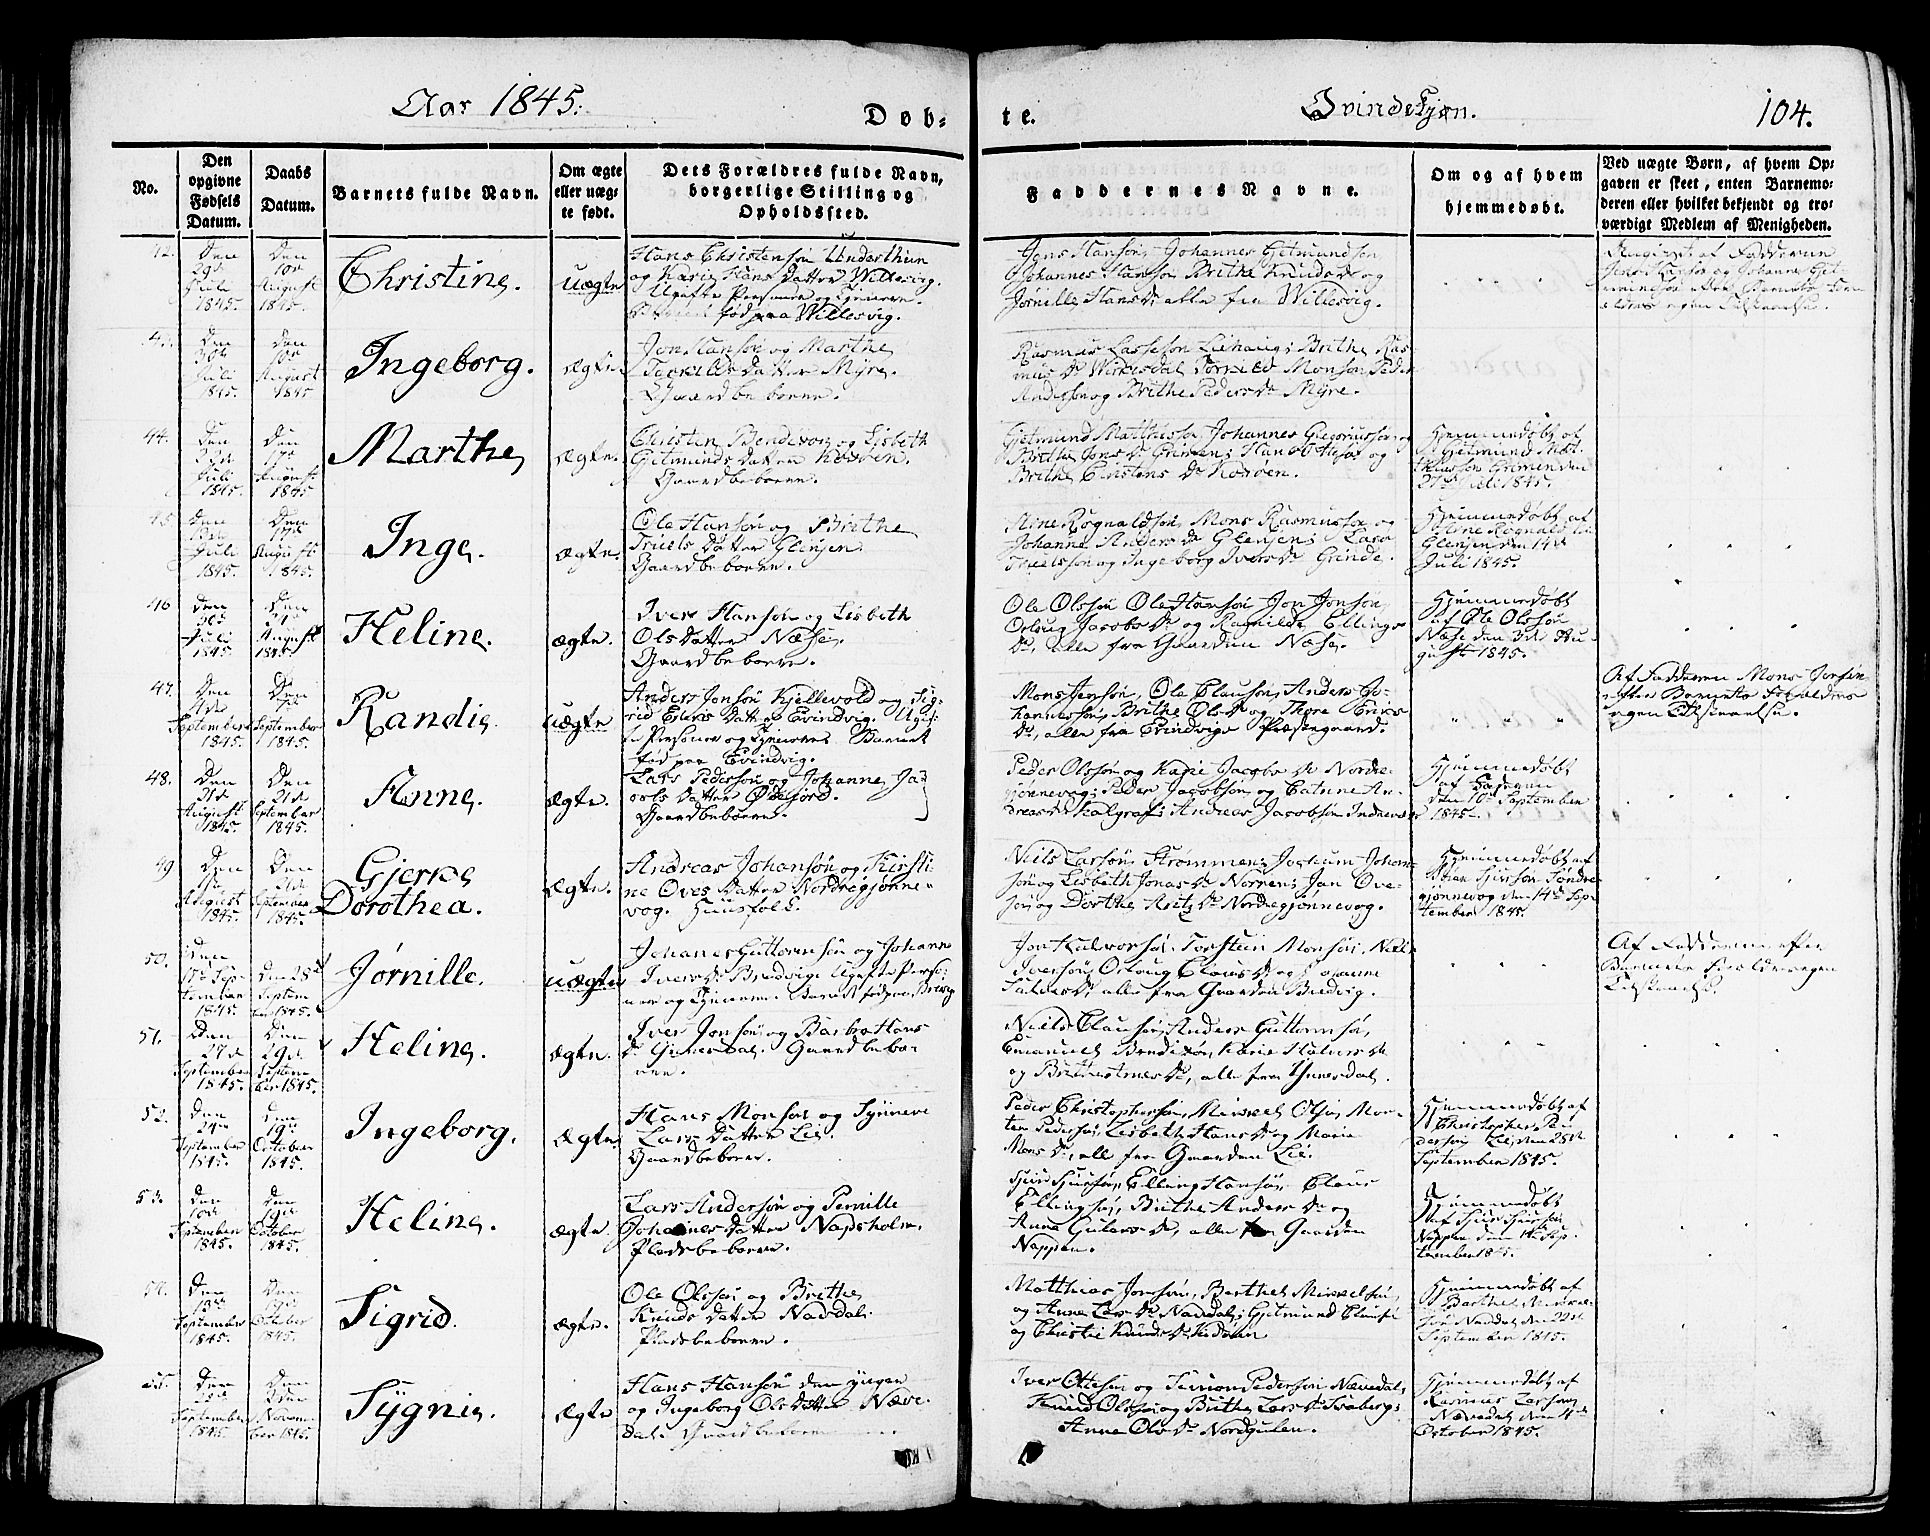 Aar 1845.
Døb-
te.
Qvindekjøn.
104.
No.
Den
opgivne
Fødsels
Datum.
Daabs
Datum.
Barnets fulde Navn.
Om ægte
eller uæg-
te født.
Dets Forældres fulde Navn,
borgerlige Stilling og
Opholdssted.
Faddernes Navne.
Om og af hvem
hjemmedøbt.
Ved uægte Børn, af hvem Op-
gaven er skeet, enten Barnemo-
deren eller hvilket bekjendt og tro-
værdigt Medlem af Menigheden.
Den
29de
Juli
1845.
Den
10de
August
1845.
Christine.
uægte
Hans Christensøn Underthun
og Karie Hans Datter Willesvig.
Ugifte Personer og
fød paa Willesvig.
Jens Hansøn, Johannes Gjetmundsøn
Johannes Hansøn Brithe Knuds Dr og
Jørnille Hans Dr, alle fra Willesvig.
Den
30te
Juli
1845.
Den
10de
August
1845.
Ingeborg.
ægte.
Jon Hansøn og Marthe
Torkilds Datter Myre.
Gaardbeboere.
Rasmus Lassesøn Liehaug; Brithe Ras-
mus Dr Wirkesdal Torkild Monsøn Peder
Andersøn og Brithe Peders Dr Myre.
44.
Den
22de
Juli
1845.
Den
17de
August
1845
Marthe
ægte.
Christen Bendixøn og Lisbeth
Gjetmunds Datter Kosøen.
Gaardbeboere.
Gjetmund Matthissøn, Johannes Gregoriussøn og
Brithe Jons Dr Grimen; Hans Ottesøn og
Brithe Cristens Dr Kosøen.
Hjemmedøbt af
Gjetmund Mat-
thiassøn Grimen den
27de Juli 1845.
45
Den
13de
Juli
1845.
Den
17de
August
1845.
Inge.
ægte.
Ole Hansøn og Brithe
Truels Datter Glenjen
Gaardbeboere.
Arne Rognaldsøn, Mons Rasmussøn og
Johanne Anders Dr Glenjen; Lars
Truelssøn og Ingeborg Ivers Dr Grinde.
Hjemmedøbt af
Arne Rognaldsøn
Glenjen den 14de
Juli 1845.
46
Den
30te
Juli
1845.
Den
August
1845.
Heline.
ægte.
Iver Hansøn og Lisbeth
Ols Datter Næse.
Gaardbeboere.
Ole Olssøn Ole Hansøn Jon Jonsøn,
Orloug Jacobs Dr og Ragnilde Ellings
Dr, alle fra Gaarden Næse.
Hjemmedøbt
af Ole Olssøn
Næse den 3de Au-
gust 1845.
47.
Den
4de
September
1845.
Den
7de
September
1845.
Randie.
uægte
Anders Jonsøn Kjellevold og Sig-
rid Eders Datter Evindvig. Ugif-
te Personer og Barnet
fød paa Evindvig.
Mons Jensøn, Ole Clausøn, Anders Jo-
hannessøn, Brithe Ols Dr og Thore Erics
Dr, alle fra Evindvigs Præstegaard.
Af Fadderen Mons Jensøn
efter Barnets Forældres
egen Tilstaaelse.
48.
Den
21de
August
1845.
Den
21de
September
1845.
Anne.
ægte.
Lars Pedersøn og Johanne Ja-
cobs Datter Ødefjord.
Gaardbeboere.
Peder Olssøn og Karie Jacobs Dr Nordre-
gjønnevog; Peder Jacobsøn og Catrine An-
dreas Dr Kalgraf; Andreas Jacobsøn Indrevær
Hjemmedøbt
af Faderen
den 10de September
1845.
49
Den
August
1845.
Den
21de
September
1845.
Gjerke
Dorothea.
ægte.
Andreas Johansøn og Kirsti-
ne Oves Datter Nordregjønne-
vog. Huusfolk.
Niels Larsøn, Strømmen; Jochum Johan-
søn og Lisbeth Jonas Dr Nornen; Jan Ove-
søn og Dorthe Dr Nordregjønnevog.
Hjemmedøbt af
Sjursøn Søndre-
gjønnevog den 14de Sep-
tember 1845.
50.
Den
17de Sep-
tember
1845.
Den 28de
Septem-
ber 1845.
Jørnille.
uægte
Johanes Guttormsøn og Johanne
Ivers Dr Brudvig. Ugifte Perso-
ner og Barnet fød paa Brudvig
Jon Halvorsøn, Torstein Monsøn, Niels
Iversøn, Orloug Claus Dr og Johanne
Halvors Dr, alle fra Gaarden Brudvig.
Af Fadderne efter
Barnets Forældres egen
Tilstaaelse.
51.
Den
27de
September
1845.
Den
29de
Septem-
ber 1845.
Heline.
ægte.
Iver Jonsøn og Barbra Hans
Dr Ynnesdal. Gaardbebo-
ere.
Niels Clausøn, Anders Guttormsøn,
Emanuel Bendixøn, Karie Halvors Dr
og Brithe Arnes Dr, alle fra Ynnesdal.
52.
Den
24de
September
1845.
Den
19de
October
1845.
Ingeborg.
ægte.
Hans Monsøn og Synneve
Lars Datter Lie.
Gaardbeboere.
Peder Christophersøn, Mikkel Olsøn, Mor-
ten Pedersøn, Lisbeth Hans Dr og Marie
Mons Dr, all fra Gaarden Lie.
Hjemmedøbt af
Christopher Pe-
dersøn Lie, den 28de
September 1845.
53.
Den
10de
September
1845.
Den
19de
October
1845.
Heline.
ægte.
Lars Andersøn og Pernille
Johannes Datter Napsholm.
Pladsbeboere.
Sjur Sjursøn, Elling Hansøn, Claus
Ellingsøn, Brithe Anders Dr og
Anne Gulers Dr, alle fra Gaarden
Nappen.
Hjemmedøbt
af Sjur Sjursøn
Nappen den 14de Sep-
tember 1845.
Den
13de
September
1845.
Den
19de
October
1845.
Sigrid.
ægte.
Ole Olssøn og Brithe
Knuds Datter Nasdal.
Pladsbeboere.
Matthias Jonsøn, Berthel Mikkelsøn,
og Anne Lars Dr Nasdal; Gjetmund Clausøn
og Christie Knuds Dr
Hjemmedøbt af
Barthel Mikkel-
søn Nasdal den 22de
September 1845.
55.
Den
September
1845.
Den
2den
Novem-
ber 1845.
Sygnie.
ægte.
Hans Hansøn den yngre
og Ingeborg Ols Datter Næve-
dal. Gaardbeboere
Iver Ottesøn og Simon Pedersøn Nævedal,
Knud Olssøn og Brithe Lars Dr
Anne Ols Dr Nordgulen.
Hjemmedøbt af
Rasmus Larsøn
Nævedal den 4de
October 1845.